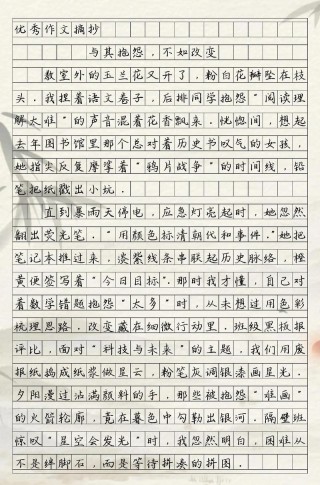 优秀作文摘抄
与其抱怨，不如改变
教室外的玉兰花又开了，粉白花瓣坠在枝
头。我捏着语文卷子，后排同学抱怨“阅读理
解太难”的声音混着花香飘来。恍惚间，想起
去年图书馆里那个总对着历史书叹气的女孩，
她指尖反复摩挲着“鸦片战争”的时间线，铅
笔把纸戳出小坑。
直到暴雨天停电，应急灯亮起时，她忽然
翻出荧光笔。“用颜色标清朝代和事件。”她把
笔记本推过来，淡紫线条串联起历史脉络，橙
黄便签写着“今日目标”。那时我才懂，自己对
着数学错题抱怨“太多”时，从未想过用色彩
梳理思路。改变藏在细微行动里。班级黑板报
评比，面对“科技与未来”的主题，我们用废
报纸捣成纸浆做星云，粉笔灰调银漆画星光。
夕阳漫过沾满颜料的手，那些被抱怨“难画”
的火箭轮廓，竟在暮色中勾勒出银河。隔壁班
惊叹“星空会发光”时，我忽然明白，困难从
不是绊脚石，而是等待拼凑的拼图。